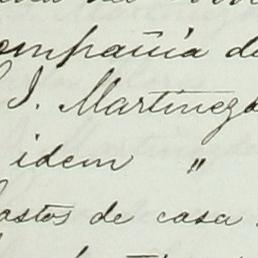 ompañia de
J. Martinez d
idem "
astos de casa